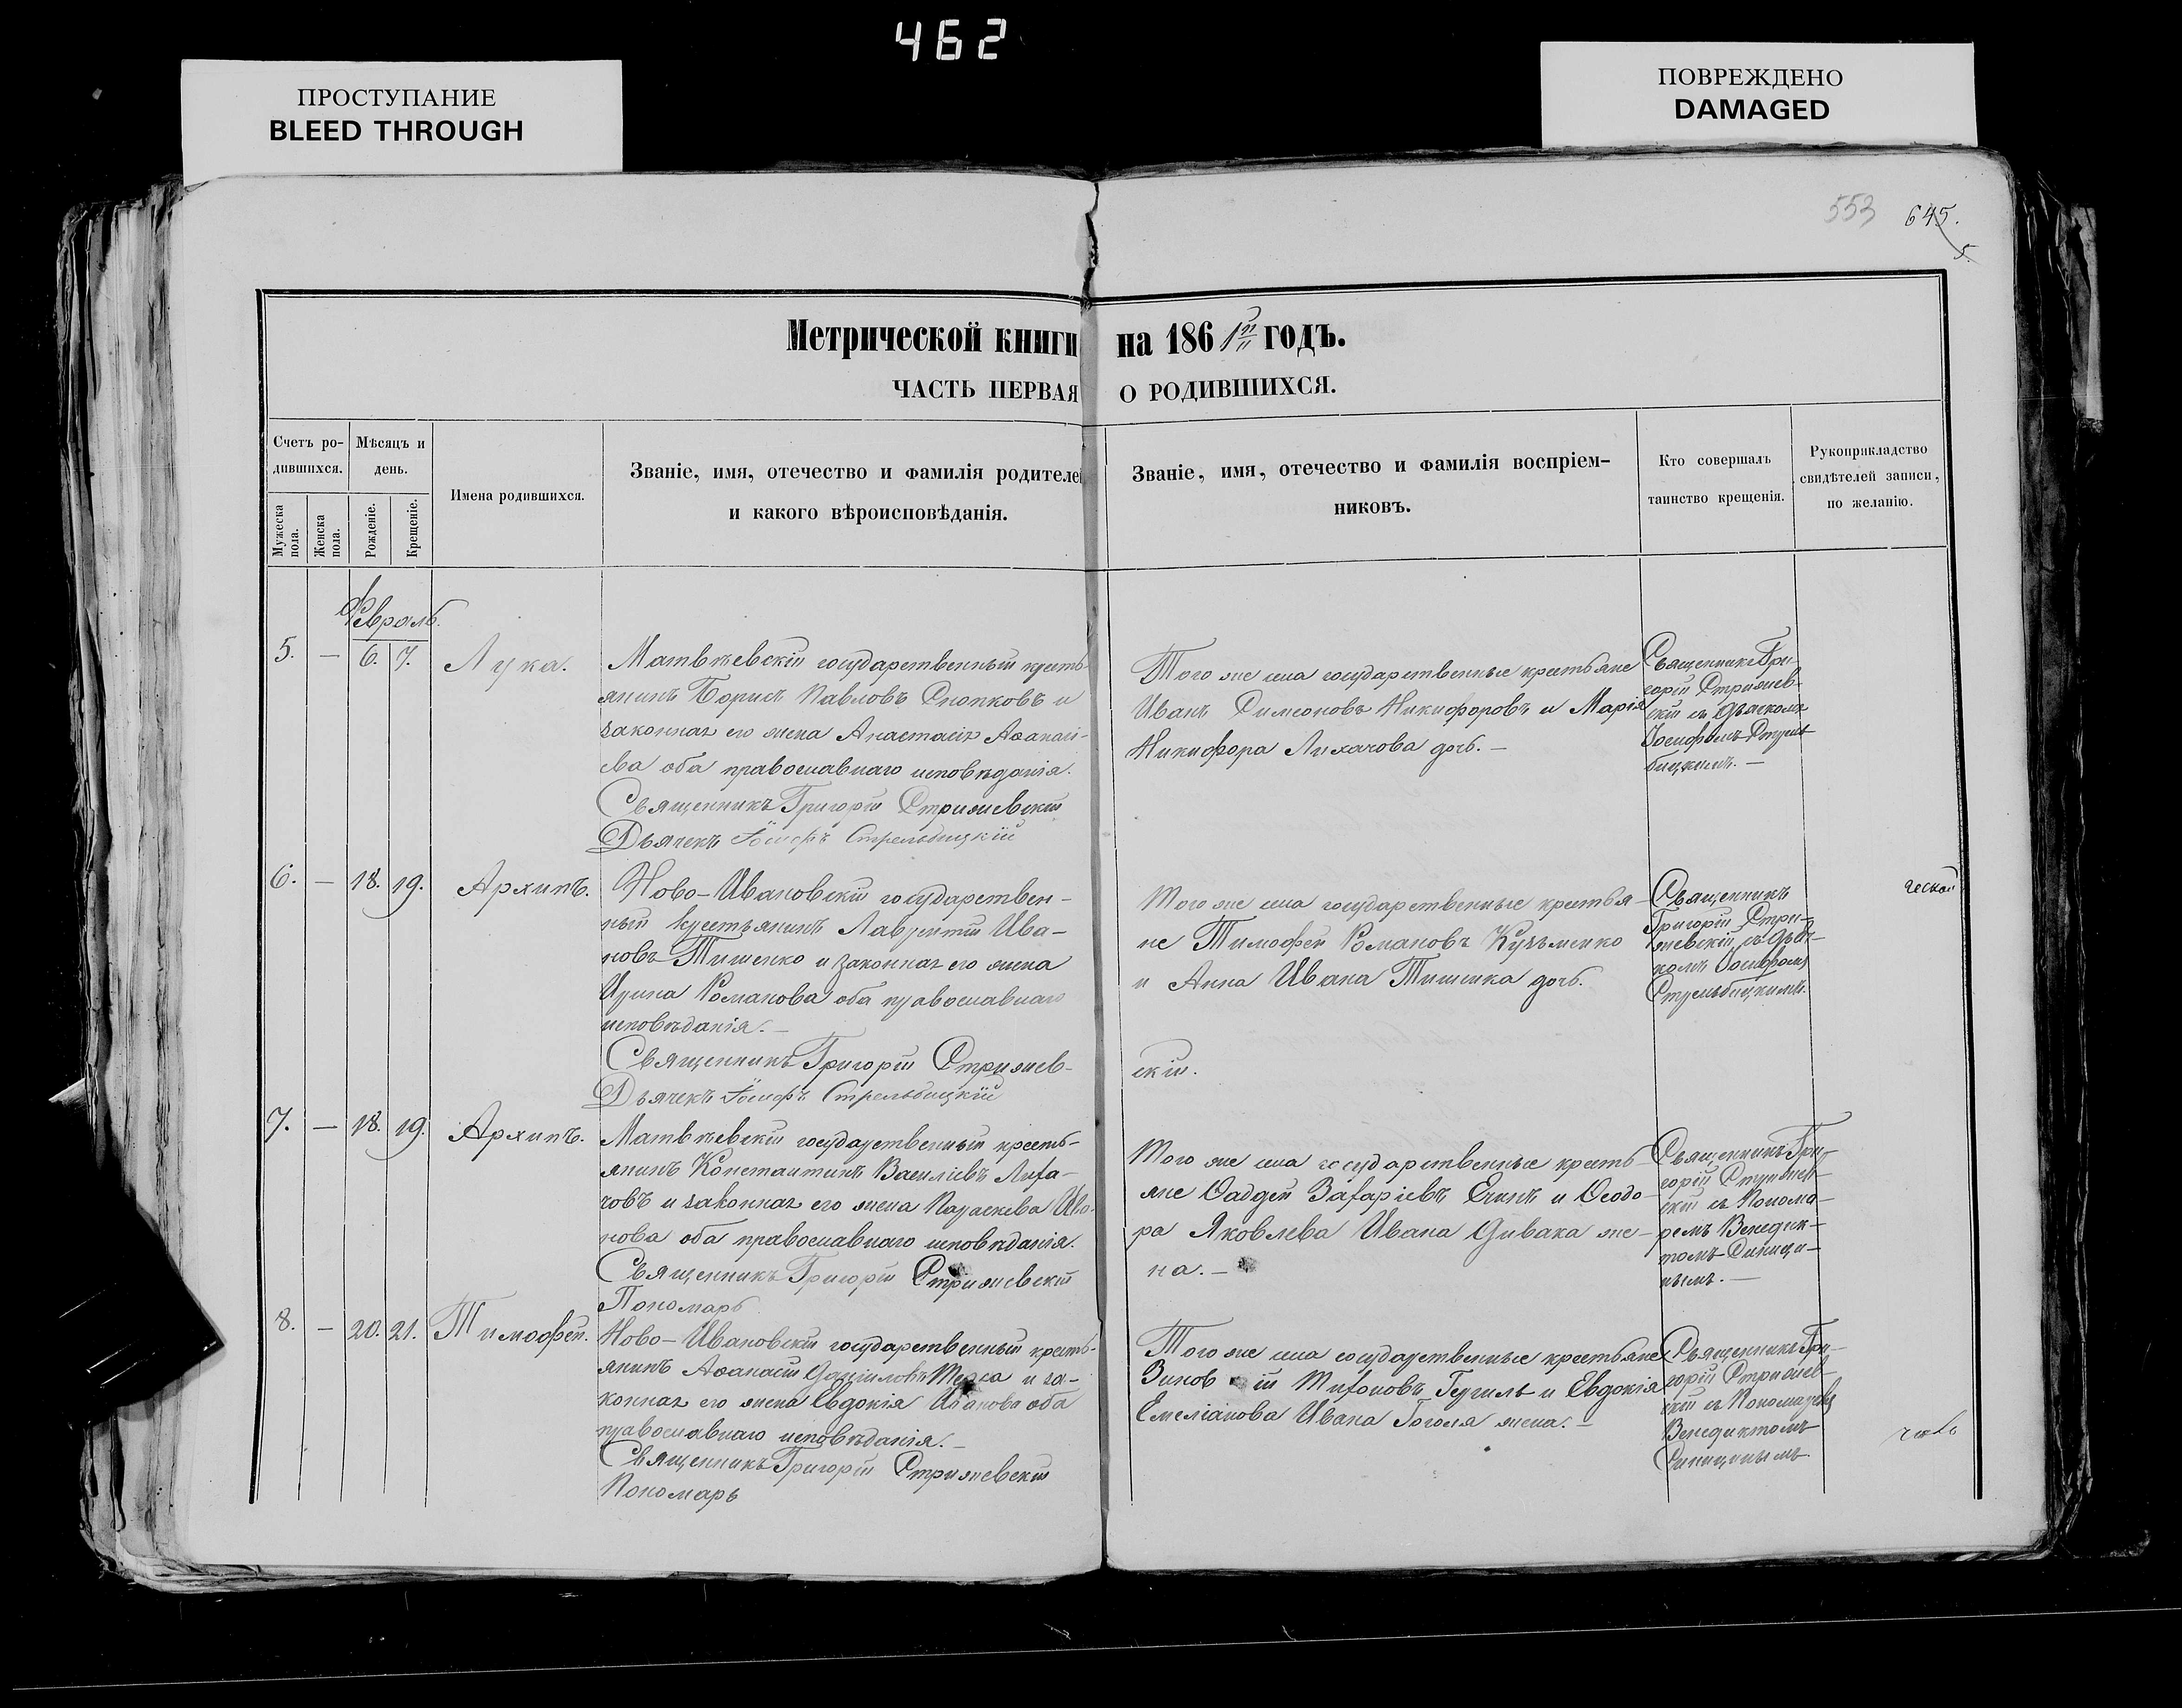 462
ПРОСТУПАНИЕ
BLEED THROUGH
ПОВРЕЖДЕНО
DAMAGED
553 645.
5.
Метрической книги на 1861й годъ.
ЧАСТЬ ПЕРВАЯ О РОДИВШИХСЯ.
Счетъ ро-
дившихся.
Мѣсяцъ и
день.
Мужеска
пола.
Женска
пола.
Рожденіе.
Крещеніе.
Имена родившихся.
Званіе, имя, отечество и фамилія родителей
и какого вѣроисповѣданія.
Званіе, имя, отечество и фамилія воспріем-
никовъ.
Кто совершалъ
таинство крещенія.
Рукоприкладство
свидѣтелей записи,
по желанію.
Февраль.
5. — 6. 7. Лука.
Матвѣевскій государственный кресть-
янинъ Борисъ Павловъ Снопковъ и
законная его жена Анастасія Аѳанась-
ева оба православнаго исповѣданія.
Священникъ Григорій Стрижевскій
Дьячекъ Іосифъ Стрельбицкій
Того же села государственные крестьяне
Иванъ Симеоновъ Никифоровъ и Марія
Никифора Лихачова дочь. —
Священникъ Гри-
горій Стрижев-
скій съ дьячкомъ
Іосифомъ Стрель-
бицкимъ. —
6. — 18. 19. Архипъ.
Ново-Ивановскій государствен-
ный крестьянинъ Лаврентій Ива-
новъ Тишенко и законная его жена
Ирина Романова оба православнаго
исповѣданія. —
Священникъ Григорій Стрижев-
скій.
Дьячекъ Іосифъ Стрельбицкій
Того же села государственные крестья-
не Тимофей Романовъ Кузьменко
и Анна Ивана Тишика дочь.
Священникъ
Григорій Стри-
жевскій съ дьяч-
комъ Іосифомъ
Стрельбицкимъ.
ческой
7. — 18. 19. Архипъ.
Матвѣевскій государственный кресть-
янинъ Константинъ Василіевъ Лиха-
човъ и законная его жена Параскева Ива-
нова оба православнаго исповѣданія.
Священникъ Григорій Стрижевскій
Пономарь
Того же села государственные кресть-
яне Фаддей Захаріевъ Екинъ и Ѳеодо-
ра Яковлева Ивана Дивака же-
на. —
Священникъ Гри-
горій Стрижев-
скій съ Понома-
ремъ Венедик-
томъ Синици-
нымъ. —
8. — 20. 21. Тимофей.
Ново-Ивановскій государственный кресть-
янинъ Аѳанасій Даніиловъ и за-
конная его жена Евдокія Иванова оба
православнаго исповѣданія. —
Священникъ Григорій Стрижевскій
Пономарь
Того же села государственные крестьяне
Зиновій Тихоновъ и Евдокія
Емеліанова Ивана Гоголя жена. —
Священникъ Гри-
горій Стрижев-
скій съ Пономаремъ
Венедиктомъ
Синицинымъ